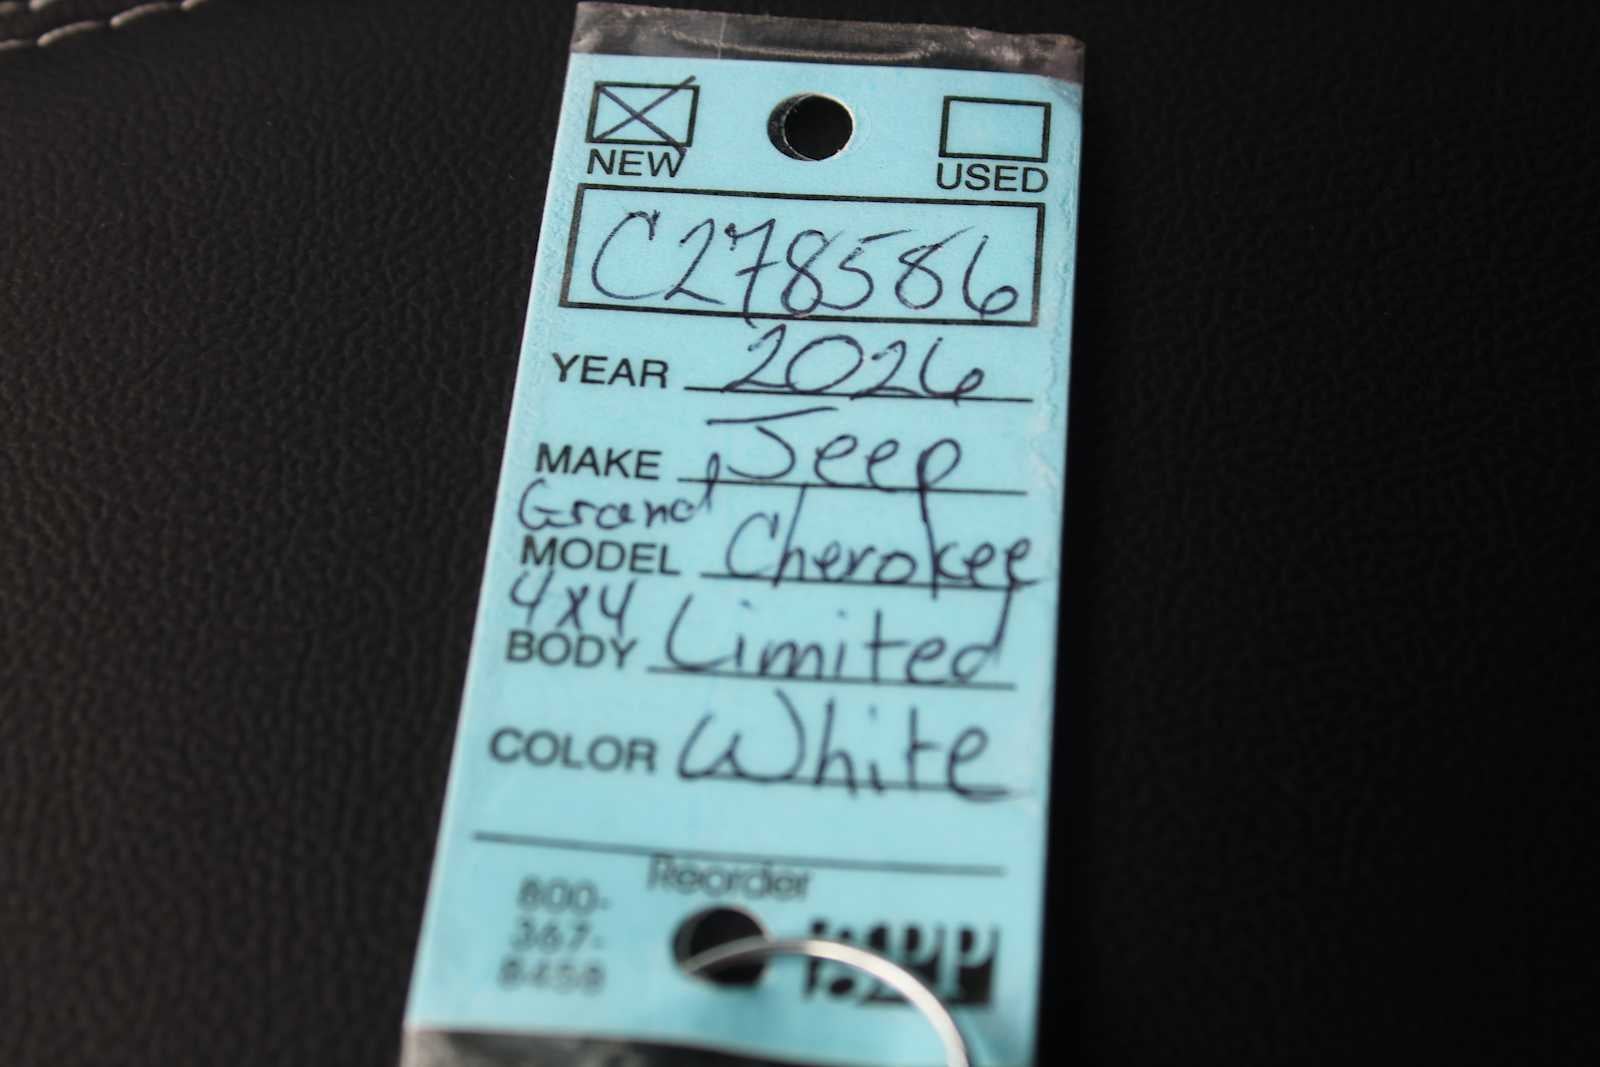 NEW USED
C278586
YEAR 2026
MAKE Jeep
Grand
MODEL Cherokee
4x4
BODY Limited
COLOR White
Reorder
800-
367-
8458